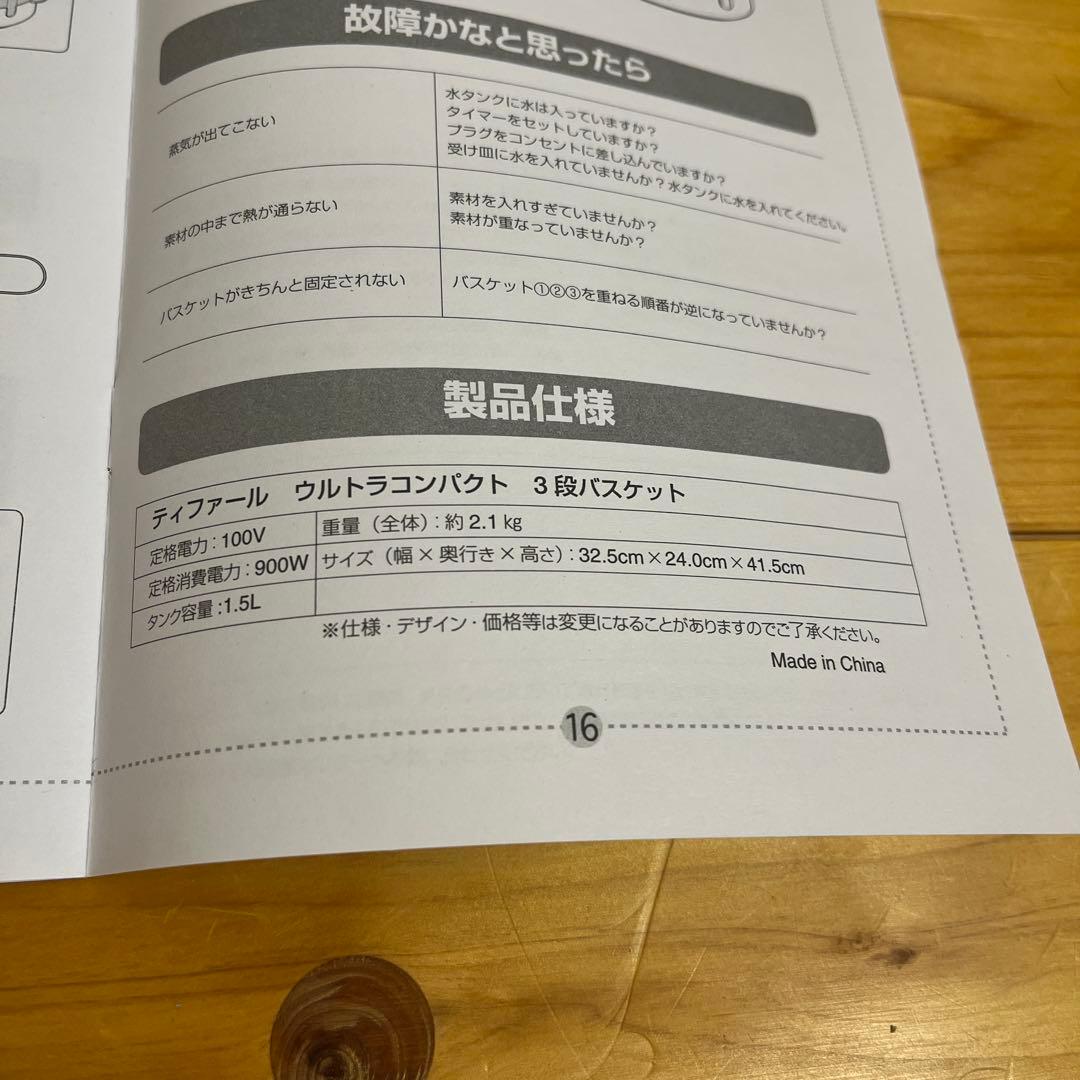 故障かなと思ったら
蒸気が出てこない
水タンクに水は入っていますか?
タイマーをセットしていますか?
プラグをコンセントに差し込んでいますか?
受け皿に水を入れていませんか?水タンクに水を入れてください。
素材の中まで熱が通らない
素材を入れすぎていませんか?
素材が重なっていませんか?
バスケットがきちんと固定されない
バスケット①②③を重ねる順番が逆になっていませんか?
製品仕様
ティファール ウルトラコンパクト 3段バスケット
定格電力:100V
重量(全体):約2.1kg
定格消費電力:900W
サイズ(幅×奥行き×高さ):32.5cm×24.0cm×41.5cm
タンク容量:1.5L
※仕様・デザイン・価格等は変更になることがありますのでご了承ください。
Made in China
16